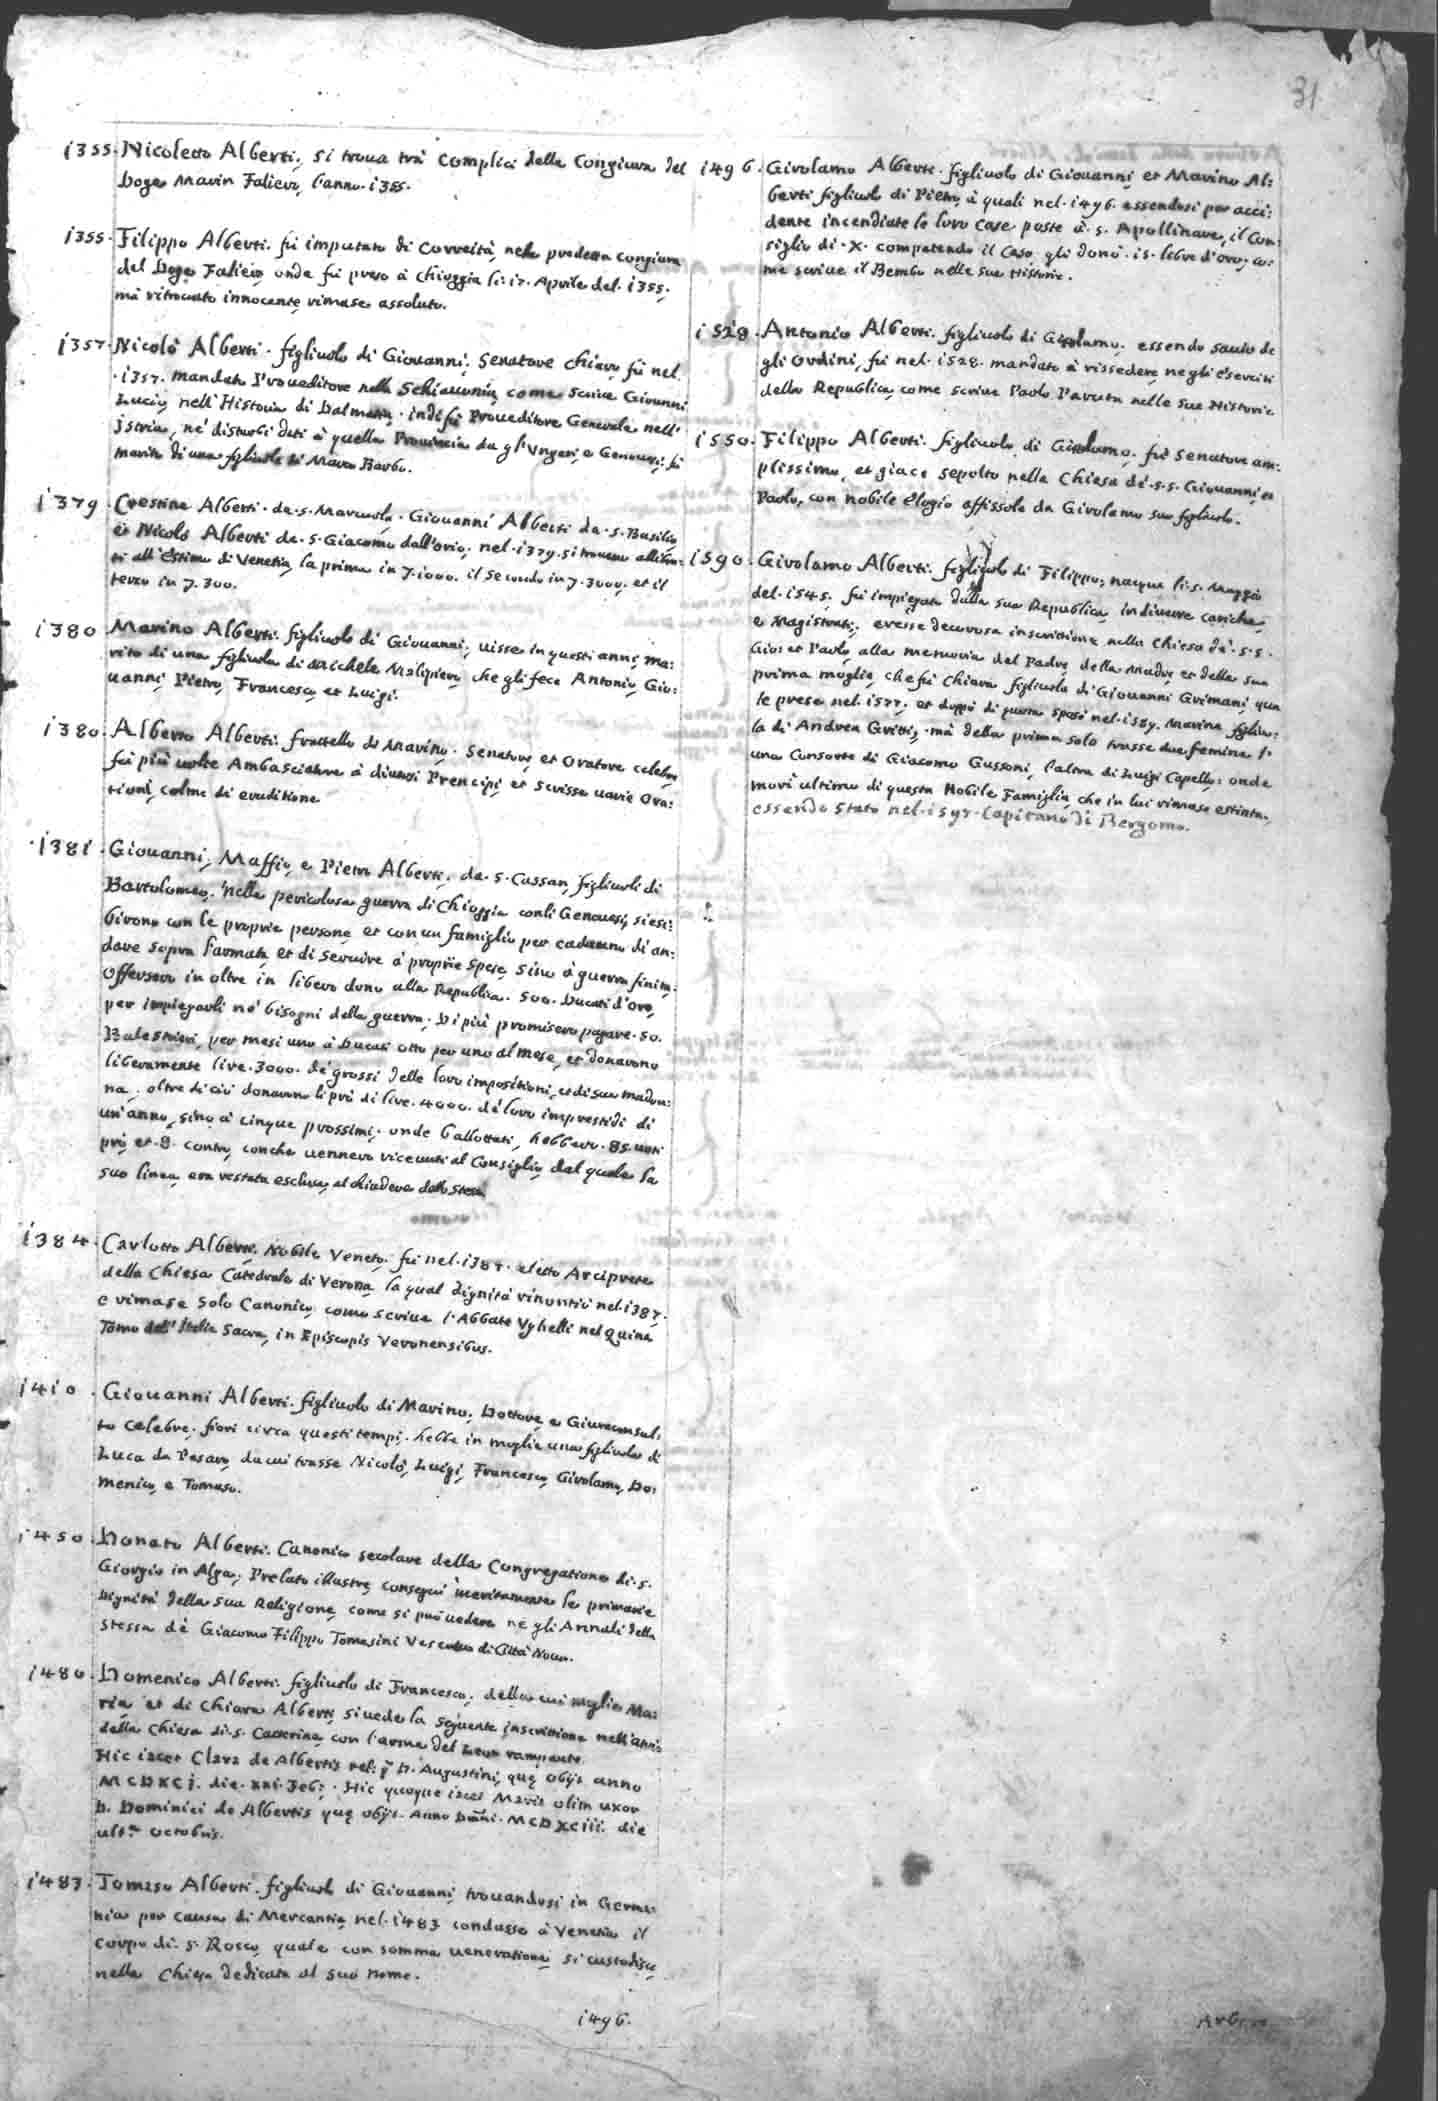 31
1355. Nicoletto Alberti, si troua trà Complici della Congiura del
Doge Marin Faliero, l'anno 1355.
1355. Filippo Alberti. fù imputato di Correità, nella predetta congiura
del Doge Faliero, onde fù preso à Chioggia li. 17. Aprile del. 1355.
mà ritrouato innocente, rimase assoluto.
1357. Nicolò Alberti. figliuolo di Giouanni, Senatore chiaro, fù nel.
.1357. mandato Proueditore nella Schiauonia, come scriue Giouanni
Lucio, nell'Historia di Dalmatia. indi fù Proueditore Generale nell'
Istria, ne' disturbi dati à quella Prouincia da gl'Vngeri, e Genouesi, fù
marito di una figliuola di Marco Barbo.
1379. Crestina Alberti. da. s. Marcuola. Giouanni Alberti da. s. Basilio
et Nicolò Alberti da. s. Giacomo dall'orio, nel. 1379. si trouano allibra:
ti all'Estimo di Venetia, la prima in 7. 1000. il secondo in 7. 3000. et il
terzo in 7. 300.
1380 Marino Alberti. figliuolo di Giouanni, uisse in questi anni, ma:
rito di una figliuola di Michele Malipiero, che gli fece Antonio, Gio:
uanni, Pietro, Francesco, et Luigi.
1380. Alberto Alberti. fratello di Marino. Senatore, et Oratore celebre
fù più uolte Ambasciatore à diuersi Prencipi, et scrisse uarie Ora:
tioni, colme di eruditione
1381. Giouanni, Maffio, e Pietro Alberti, da. s. Cassan, figliuoli di
Bartolomeo. nella pericolosa guerra di Chioggia conli Genouesi, si esi:
birono con le proprie persone, et con un famiglio per cadauno di an:
dare sopra l'armata, et di seruire à proprie spese, sino à guerra finita.
Offersero in oltre in libero dono alla Republica. 500. Ducati d'oro,
per impiegarli ne' bisogni della guerra. Di più promisero pagare. 50.
Balestrieri, per mesi uno à Ducati otto per uno al mese, et donarono
liberamente lire. 3000. de' grossi delle loro impositioni, et di sua madon:
na. oltre di ciò donarono li prò di lire. 4000. de' loro imprestidi di
un'anno, sino à cinque prossimi. onde ballottati, hebbero. 85. uoti
prò, et. 8. contro, conche uennero riceuuti al Consiglio, dal quale la
sua linea, era restata esclusa, al chiudere dello stesso
1384. Carlotto Alberti, Nobile Veneto. fù nel. 1384. eletto Arciprete
della Chiesa Catedrale di Verona, la qual dignità rinontiò nel. 1387.
e rimase solo Canonico, come scriue l'Abbate Vghelli nel quinto
Tomo dell'Italia Sacra, in Episcopis Veronensibus.
1410. Giouanni Alberti. figliuolo di Marino, Dottore, e Giureconsul.
to celebre. fiorì circa questi tempi. hebbe in moglie una figliuola di
Luca da Pesaro, da cui trasse Nicolò, Luigi, Francesco, Girolamo, Do:
menico, e Tomaso.
1450. Donato Alberti. Canonico secolare della Congregatione di. s.
Giorgio in Alga, Prelato illustre, conseguì meritamente le primarie
Dignità della sua Religione, come si può uedere ne gli Annali della
stessa dè Giacomo Filippo Tomasini Vescouo di Città Noua.
1480. Domenico Alberti. figliuolo di Francesco, della cui moglie Ma:
ria, et di Chiara Alberti, si uede la seguente inscrittione nell'atrio
della Chiesa di. s. Catterina, con l'arma del Leon rampante.
Hic iacet Clara de Albertis rel: q D. Augustini, quę obijt anno
MCDXCI. die. xxi. Feb: . Hic quoque iacet Maria olim uxor
D. Dominici de Albertis quę obijt. Anno Dñi. MCDXCIII. die
ult.º octobris.
1483. Tomaso Alberti. figliuolo di Giouanni, trouandosi in Germa:
nia per causa di Mercantia, nel. 1483 condusse à Venetia il
Corpo di. s. Rocco, quale con somma ueneratione, si custodisce,
nella Chiesa dedicata al suo nome.
1496.
1496. Girolamo Alberti. figliuolo di Giouanni, et Marino Al:
berti figliuolo di Pietro, à quali nel. 1496. essendosi per acci:
dente incendiate le loro Case poste à. s. Apollinare, il Con:
siglio di. X. compatendo il caso, gli donò. 15. libre d'oro, co:
me scriue il Bembo nelle sue Historie.
1528. Antonio Alberti. figliuolo di Girolamo. essendo sauio de
gli Ordini, fù nel. 1528. mandato à rissedere, negli eserciti
della Republica, come scriue Paolo Paruta nelle sue Historie
1550. Filippo Alberti. figliuolo di Girolamo, fù senatore am:
plissimo, et giace sepolto nella Chiesa de'. s.s. Giouanni, et
Paolo, con nobile elogio affissole da Girolamo suo figliuolo.
1590. Girolamo Alberti. figliuolo di Filippo, nacque li. 5. Maggio
del. 1545. fù impiegato dalla sua Republica, in diuerse cariche,
e Magistrati, eresse decorosa inscrittione nella Chiesa dè. s.s.
Gio: et Paolo, alla memoria del Padre, della Madre, et della sua
prima moglie, che fù Chiara figliuola di Giouanni Grimani, qua
le prese nel. 1577. et doppò di questa sposò nel. 1587. Marina figliuo:
la di Andrea Gritti, mà della prima solo trasse due femine l'
una Consorte di Giacomo Gussoni, l'altra di Luigi Capello: onde
morì ultimo di questa Nobile Famiglia, che in lui rimase estinta,
essendo stato nel. 1595. Capitano di Bergomo.